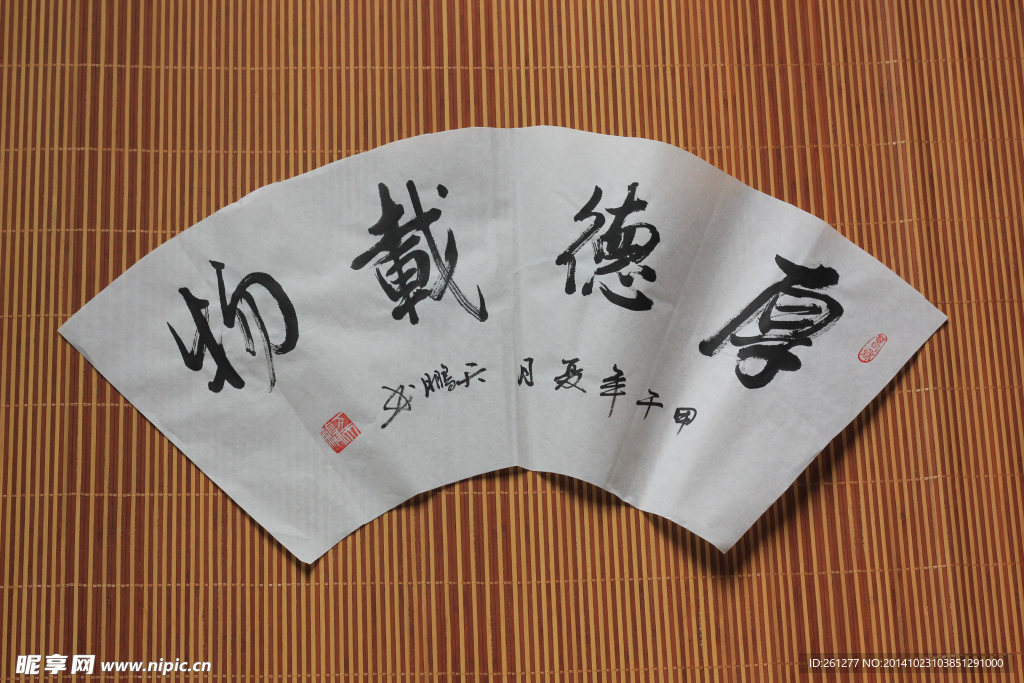 厚德載物
甲午年夏月 天鵬
昵享网 www.nipic.cn
ID:261277 NO:20141023103851291000